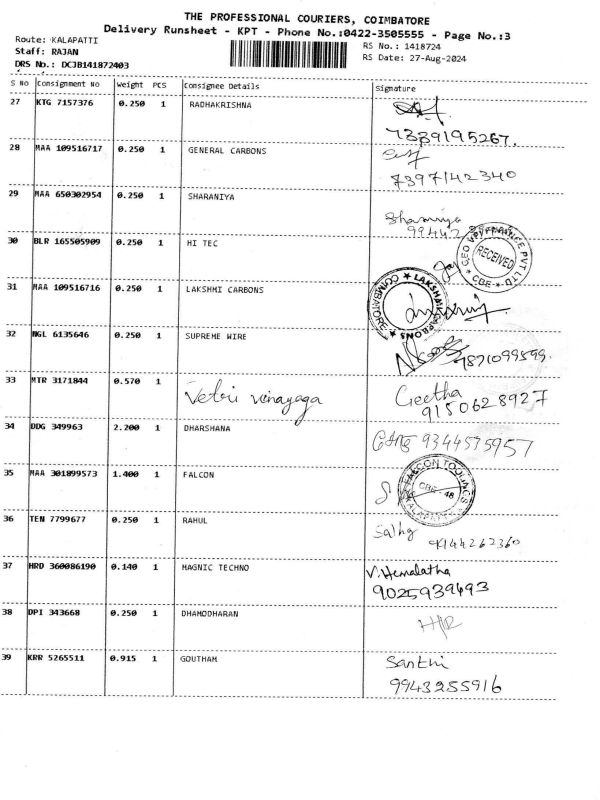 THE PROFESSIONAL COURIERS, COIMBATORE
Delivery Runsheet - KPT - Phone No.:0422-3505555 - Page No.:3
Route: KALAPATTI
RS No.: 1418724
Staff: RAJAN
RS Date: 27-Aug-2024
DRS No.: DCJB141872403
S No Consignment No Weight PCS Consignee Details Signature
27 KTG 7157376 0.250 1 RADHAKRISHNA
7339195267.
28 MAA 109516717 0.250 1 GENERAL CARBONS
7397142340
29 MAA 650302954 0.250 1 SHARANIYA
Sharaniya
99442
30 BLR 165505909 0.250 1 HI TEC
RECEIVED
CBE
31 MAA 109516716 0.250 1 LAKSHMI CARBONS
LAKSHMI CARBONS
COIMBATORE
32 NGL 6135646 0.250 1 SUPREME WIRE
9871099599.
33 MTR 3171844 0.570 1 Vetri vinayaga Geetha
9150628927
34 DDG 349963 2.200 1 DHARSHANA
9344575957
35 MAA 301899573 1.400 1 FALCON
FALCON TOOLINGS
CBE - 48
36 TEN 7799677 0.250 1 RAHUL
9944262360
37 HRD 360086190 0.140 1 MAGNIC TECHNO V. Hemalatha
9025939493
38 DPI 343668 0.250 1 DHAMODHARAN
39 KRR 5265511 0.915 1 GOUTHAM Santhi
9943255916